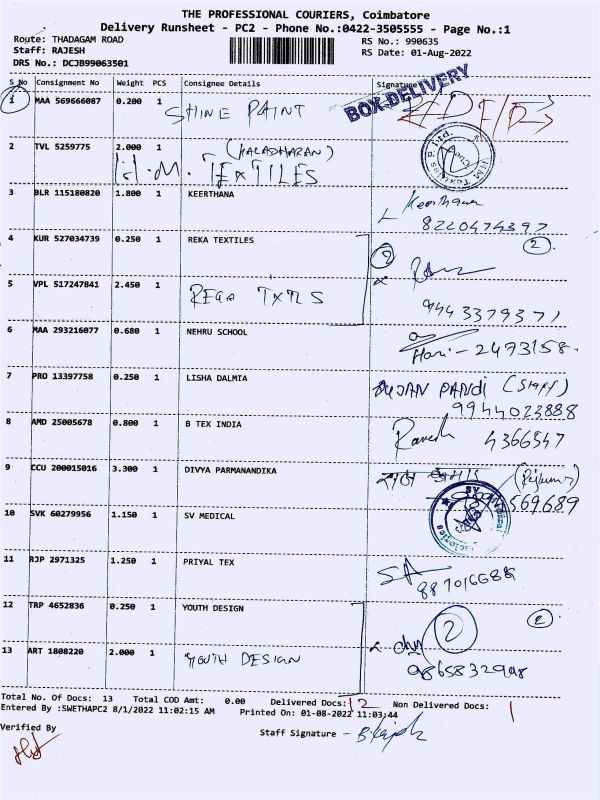 THE PROFESSIONAL COURIERS, Coimbatore
Delivery Runsheet - PC2 - Phone No.:0422-3505555 - Page No.:1
Route: THADAGAM ROAD RS No.: 990635
Staff: RAJESH RS Date: 01-Aug-2022
DRS No.: DCJB99063501
S No Consignment No Weight PCS Consignee Details Signature
BOX-DELIVERY
1 MAA 569666087 0.200 1 SHINE PAINT
2 TVL 5259775 2.000 1 (KALADHARAN)
H.M. TEXTILES
3 BLR 115180820 1.800 1 KEERTHANA Keerthana
8220474397
4 KUR 527034739 0.250 1 REKA TEXTILES 2
5 VPL 517247841 2.450 1 REGA TXTLS
9443379371
6 MAA 293216077 0.680 1 NEHRU SCHOOL Hari - 2473158
7 PRO 13397758 0.250 1 LISHA DALMIA PANDI (Staff)
9944023888
8 AMD 25005678 0.800 1 B TEX INDIA Ramesh 4366547
9 CCU 200015016 3.300 1 DIVYA PARMANANDIKA
569689
10 SVK 60279956 1.150 1 SV MEDICAL
11 RJP 2971325 1.250 1 PRIYAL TEX
12 TRP 4652836 0.250 1 YOUTH DESIGN 2
13 ART 1808220 2.000 1 YOUTH DESIGN
9865832998
Total No. Of Docs: 13 Total COD Amt: 0.00 Delivered Docs: 12 Non Delivered Docs: 1
Entered By :SWETHAPC2 8/1/2022 11:02:15 AM Printed On: 01-08-2022 11:03:44
Verified By Staff Signature -